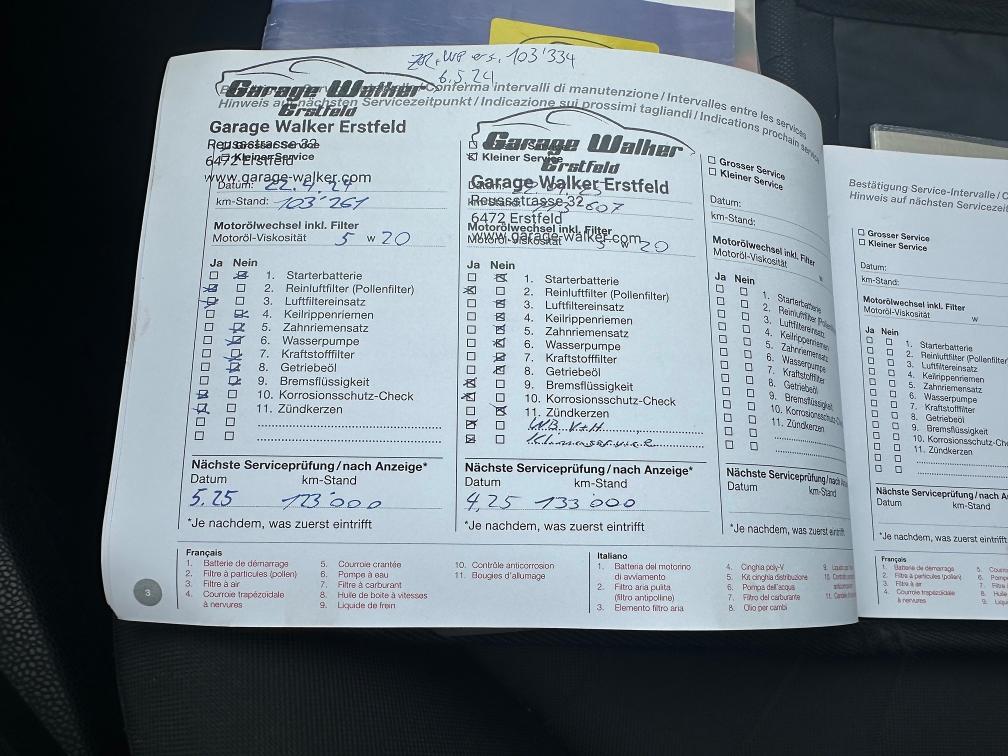 ZR + WP ers. 103'334
6.5.24
Conferma intervalli di manutenzione / Intervalles entre les services
Hinweis auf nächsten Servicezeitpunkt / Indicazione sui prossimi tagliandi / Indications prochain service
Garage Walker
Erstfeld
Garage Walker Erstfeld
Reussstrasse 32
6472 Erstfeld
www.garage-walker.ch
Kleiner Service
Datum: 22.4.24
km-Stand: 103'261
Motorölwechsel inkl. Filter
Motoröl-Viskosität 5 w 20
Ja Nein
1. Starterbatterie
2. Reinluftfilter (Pollenfilter)
3. Luftfiltereinsatz
4. Keilrippenriemen
5. Zahnriemensatz
6. Wasserpumpe
7. Kraftstofffilter
8. Getriebeöl
9. Bremsflüssigkeit
10. Korrosionsschutz-Check
11. Zündkerzen
Nächste Serviceprüfung / nach Anzeige*
Datum km-Stand
5.25 123'000
*Je nachdem, was zuerst eintrifft
Garage Walker
Erstfeld
Kleiner Service
Garage Walker Erstfeld
Reussstrasse 32
6472 Erstfeld
www.garage-walker.com
607
Motorölwechsel inkl. Filter
Motoröl-Viskosität w 20
Ja Nein
1. Starterbatterie
2. Reinluftfilter (Pollenfilter)
3. Luftfiltereinsatz
4. Keilrippenriemen
5. Zahnriemensatz
6. Wasserpumpe
7. Kraftstofffilter
8. Getriebeöl
9. Bremsflüssigkeit
10. Korrosionsschutz-Check
11. Zündkerzen
WB. V+H
Klimaservice
Nächste Serviceprüfung / nach Anzeige*
Datum km-Stand
4,25 133'000
*Je nachdem, was zuerst eintrifft
Grosser Service
Kleiner Service
Datum:
km-Stand:
Motorölwechsel inkl. Filter
Motoröl-Viskosität w
Ja Nein
1. Starterbatterie
2. Reinluftfilter (Pollenfilter)
3. Luftfiltereinsatz
4. Keilrippenriemen
5. Zahnriemensatz
6. Wasserpumpe
7. Kraftstofffilter
8. Getriebeöl
9. Bremsflüssigkeit
10. Korrosionsschutz-Check
11. Zündkerzen
Nächste Serviceprüfung / nach
Datum km-Stand
*Je nachdem, was zuerst eintrifft
Français
1. Batterie de démarrage
2. Filtre à particules (pollen)
3. Filtre à air
4. Courroie trapézoïdale
à nervures
5. Courroie crantée
6. Pompe à eau
7. Filtre à carburant
8. Huile de boite à vitesses
9. Liquide de frein
10. Contrôle anticorrosion
11. Bougies d'allumage
Italiano
1. Batteria del motorino
di avviamento
2. Filtro aria pulita
(filtro antipolline)
3. Elemento filtro aria
4. Cinghia poly-V
5. Kit cinghia distribuzione
6. Pompa dell'acqua
7. Filtro del carburante
8. Olio per cambi
3
Bestätigung Service-Intervalle /
Hinweis auf nächsten
Grosser Service
Kleiner Service
Datum:
km-Stand:
Motorölwechsel inkl. Filter
Motoröl-Viskosität w
Ja Nein
1. Starterbatterie
2. Reinluftfilter (Pollenfilter)
3. Luftfiltereinsatz
4. Keilrippenriemen
5. Zahnriemensatz
6. Wasserpumpe
7. Kraftstofffilter
8. Getriebeöl
9. Bremsflüssigkeit
10. Korrosionsschutz-Check
11. Zündkerzen
Nächste Serviceprüfung / nach
Datum km-Stand
*Je nachdem, was zuerst eintrifft
Français
1. Batterie de démarrage
2. Filtre à particules (pollen)
3. Filtre à air
4. Courroie trapézoïdale
à nervures